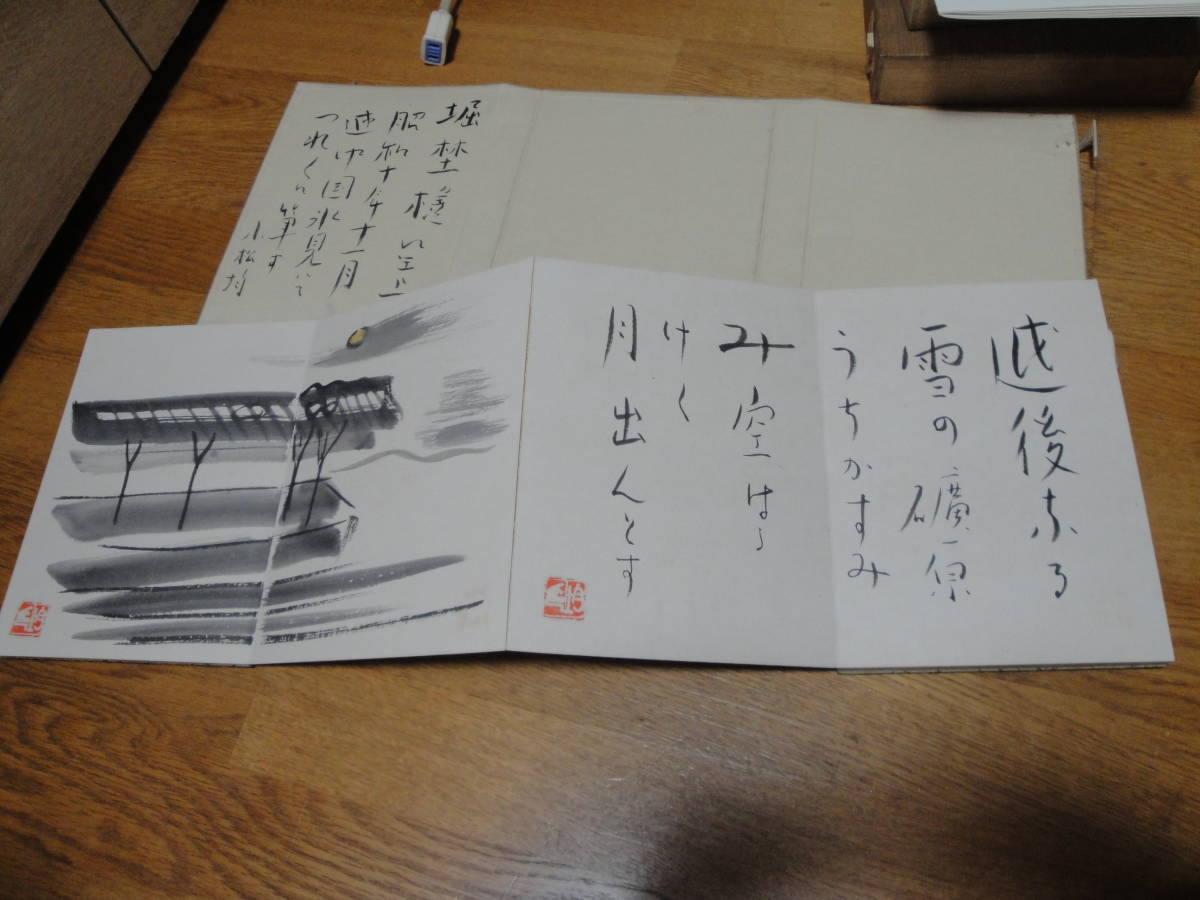 越後なる
雪の礦原
うちかすみ
み空はろ
けく
月出んとす
堀埜様に呈上
昭和十年十一月
越中国氷見にて
つれ〱に筆す
小松均